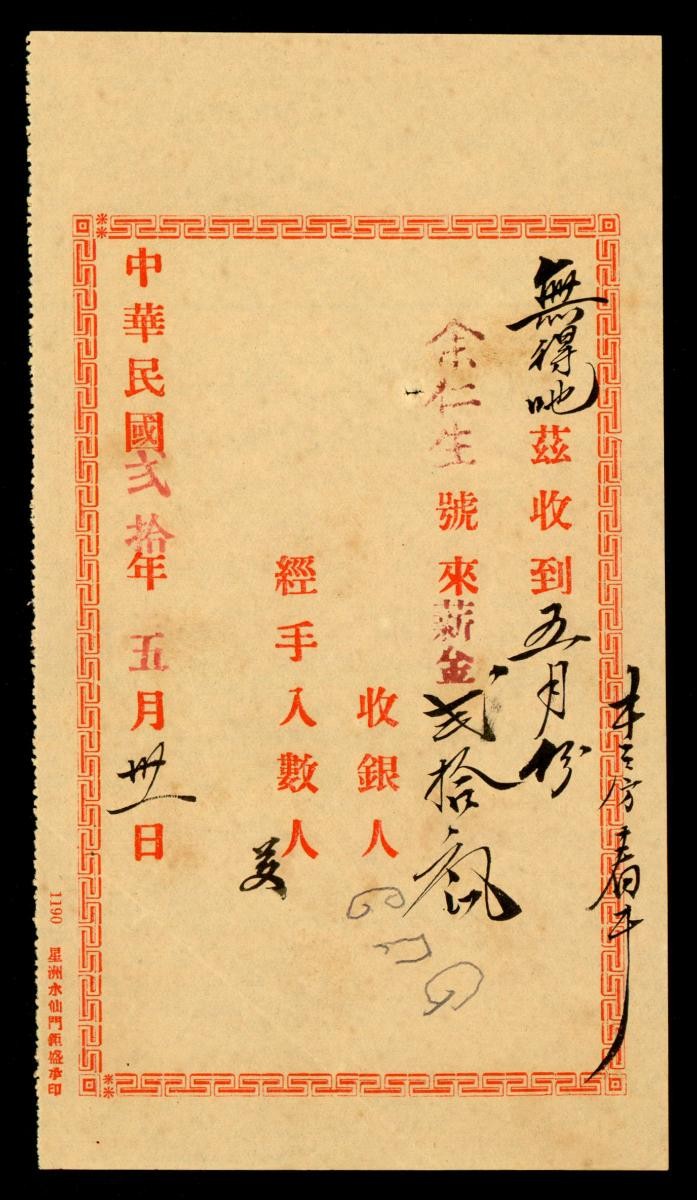 無得吔茲收到五月份
余仁生號來薪金弍拾
收銀人
經手入數人
中華民國弍拾年五月卅一日
1190 星洲水仙門鉅盛承印